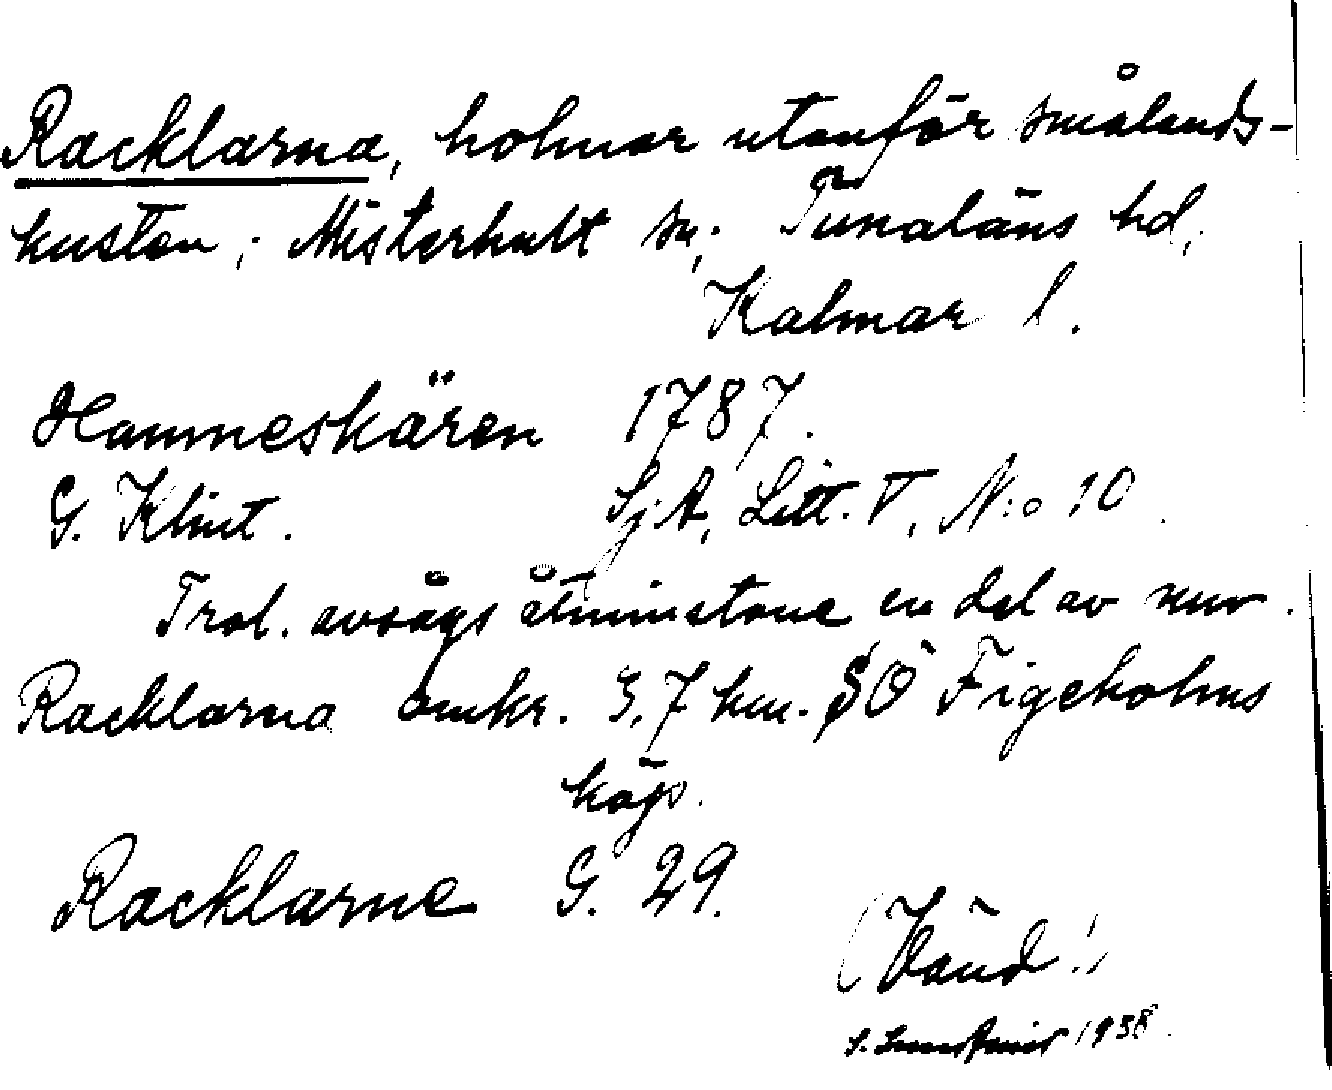 Racklarna, holmar utanför smålands-
kusten; Misterhult sn; Tunaläns hd,
Kalmar l.
Hamneskären 1787.
G. Klint. SjA, Litt. V, N:o 10.
Trol. avsågs åtminstone en del av nuv.
Racklarna omkr. 3,7 km. SÖ Figeholms
köp.
Racklarne G. 29.
(Vänd!)
S. 1938.